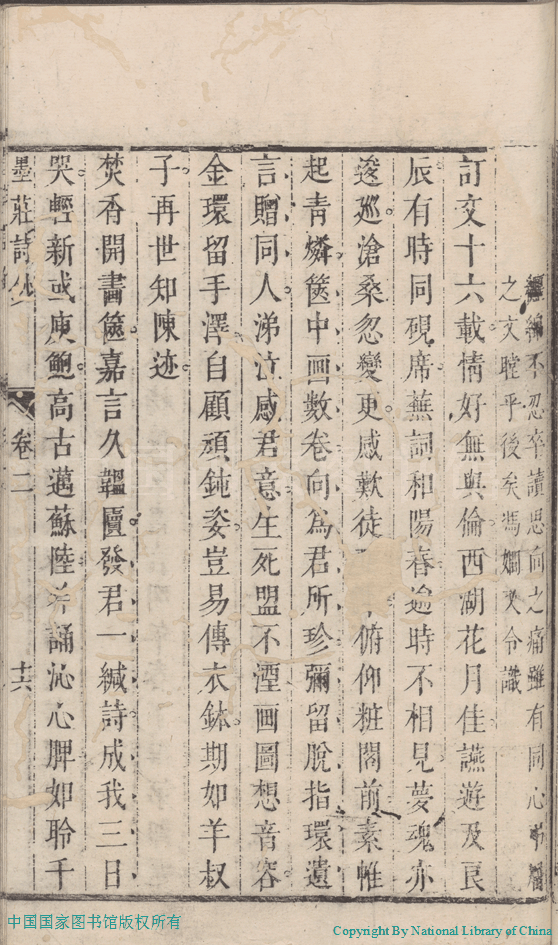 編不忍卒讀思向之痛雖有同心
之文瞠乎後矣馮嫻又令識
訂交十六載情好無與倫西湖花月佳讌遊及良
辰有時同硯席蕪詞和陽春逾時不相見夢魂亦
逡巡滄桑忽變更感歎徒俯仰粧閣前素帷
起青燐篋中画數卷向為君所珍彌留脫指環遺
言贈同人涕泣感君意生死盟不湮画圖想音容
金環留手澤自顧頑鈍姿豈易傳衣鉢期如羊叔
子再世知陳迹
焚香開畫篋嘉言久韞匱發君一緘詩成我三日
哭輕新或庾鮑高古邁蘇陸誦沁心脾如聆千
墨莊詩鈔
卷二
十六
中国国家图书馆版权所有
Copyright By National Library of China